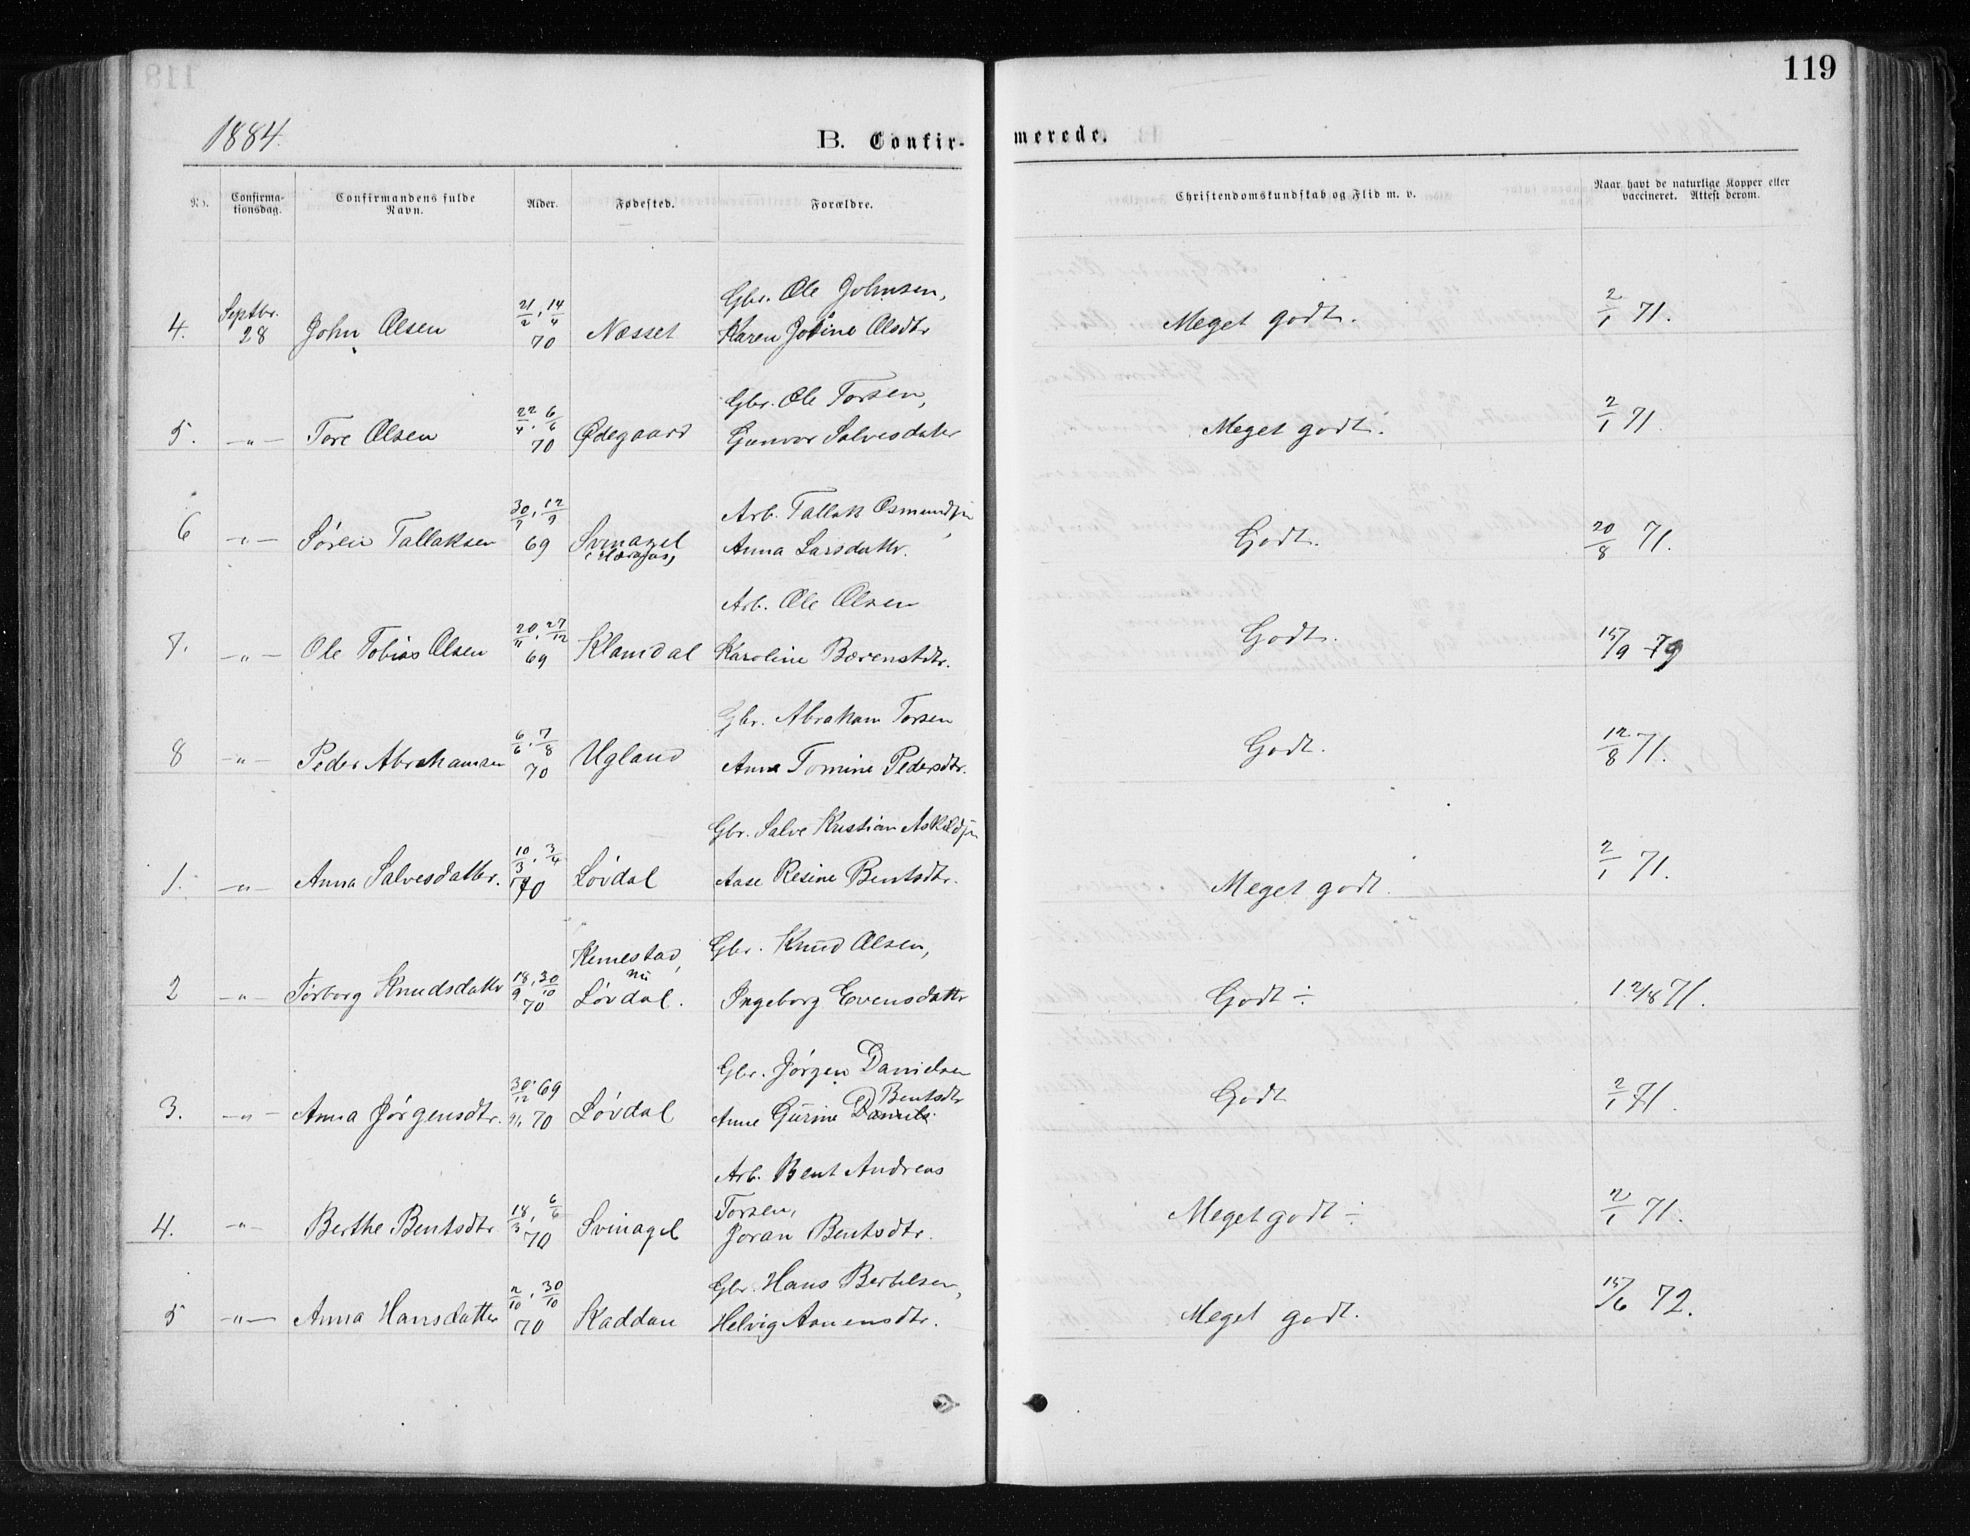 119
1884.
B. Confirmerede.
No. Confirmationsdag. Confirmandens fulde Navn. Alder. Fødested. Forældre. Christendomskundskab og Flid m. v. Naar havt de naturlige Kopper eller vaccineret. Attest derom.
4. Septbr. 28 John Olsen 21/2, 14/4 70 Næsset Gbr. Ole Johnsen, Karen Olsdtr Meget godt. 2/1 71.
5. -"- Tore Olsen 22/4, 6/6 70 Ødegaard Gbr. Ole Torsen, Gunvor Salvesdatter Meget godt. 2/1 71.
6 -"- Sören Tallaksen 30/7, 12/9 69 Svinagel Arb. Tallak Osmundsen, Anna Larsdatter. Godt. 20/8 71.
7. -"- Ole Tobias Olsen 20/11, 27/12 69 Klamdal Arb. Ole Olsen Karoline Berentsdtr. Godt. 15/9 79
8 -"- Peder Abrahamsen 6/6, 7/8 70 Ugland Gbr. Abraham Torsen Anne Tomine Pedersdtr. Godt. 12/8 71.
1. -"- Anna Salvesdatter. 10/3, 3/4 70 Lövdal Gbr. Salve Kristian Askildsen Aase Resine Bentsdtr. Meget godt. 2/1 71.
2 -"- Torborg Knudsdatter 18/9, 30/10 70 Kimestad, nu Lövdal. Gbr. Knud Olsen, Ingeborg Evensdatter Godt ÷ 12/8 71.
3. -"- Anna Jörgensdtr. 30/12 69 70 Lövdal Gbr. Jörgen Danielsen Anne Gurine Bentsdtr Godt 2/1 71.
4. -"- Berthe Bentsdtr 18/3, 6/6 70 Svinagel Arb. Bent Andreas Torsen, Joran Bentsdtr. Meget godt ÷ 2/1 71.
5 -"- Anna Hansdatter 2/10, 30/10 70 Kaddan Gbr. Hans Bertelsen, Helvig Aanensdtr. Meget godt. 15/6 72.